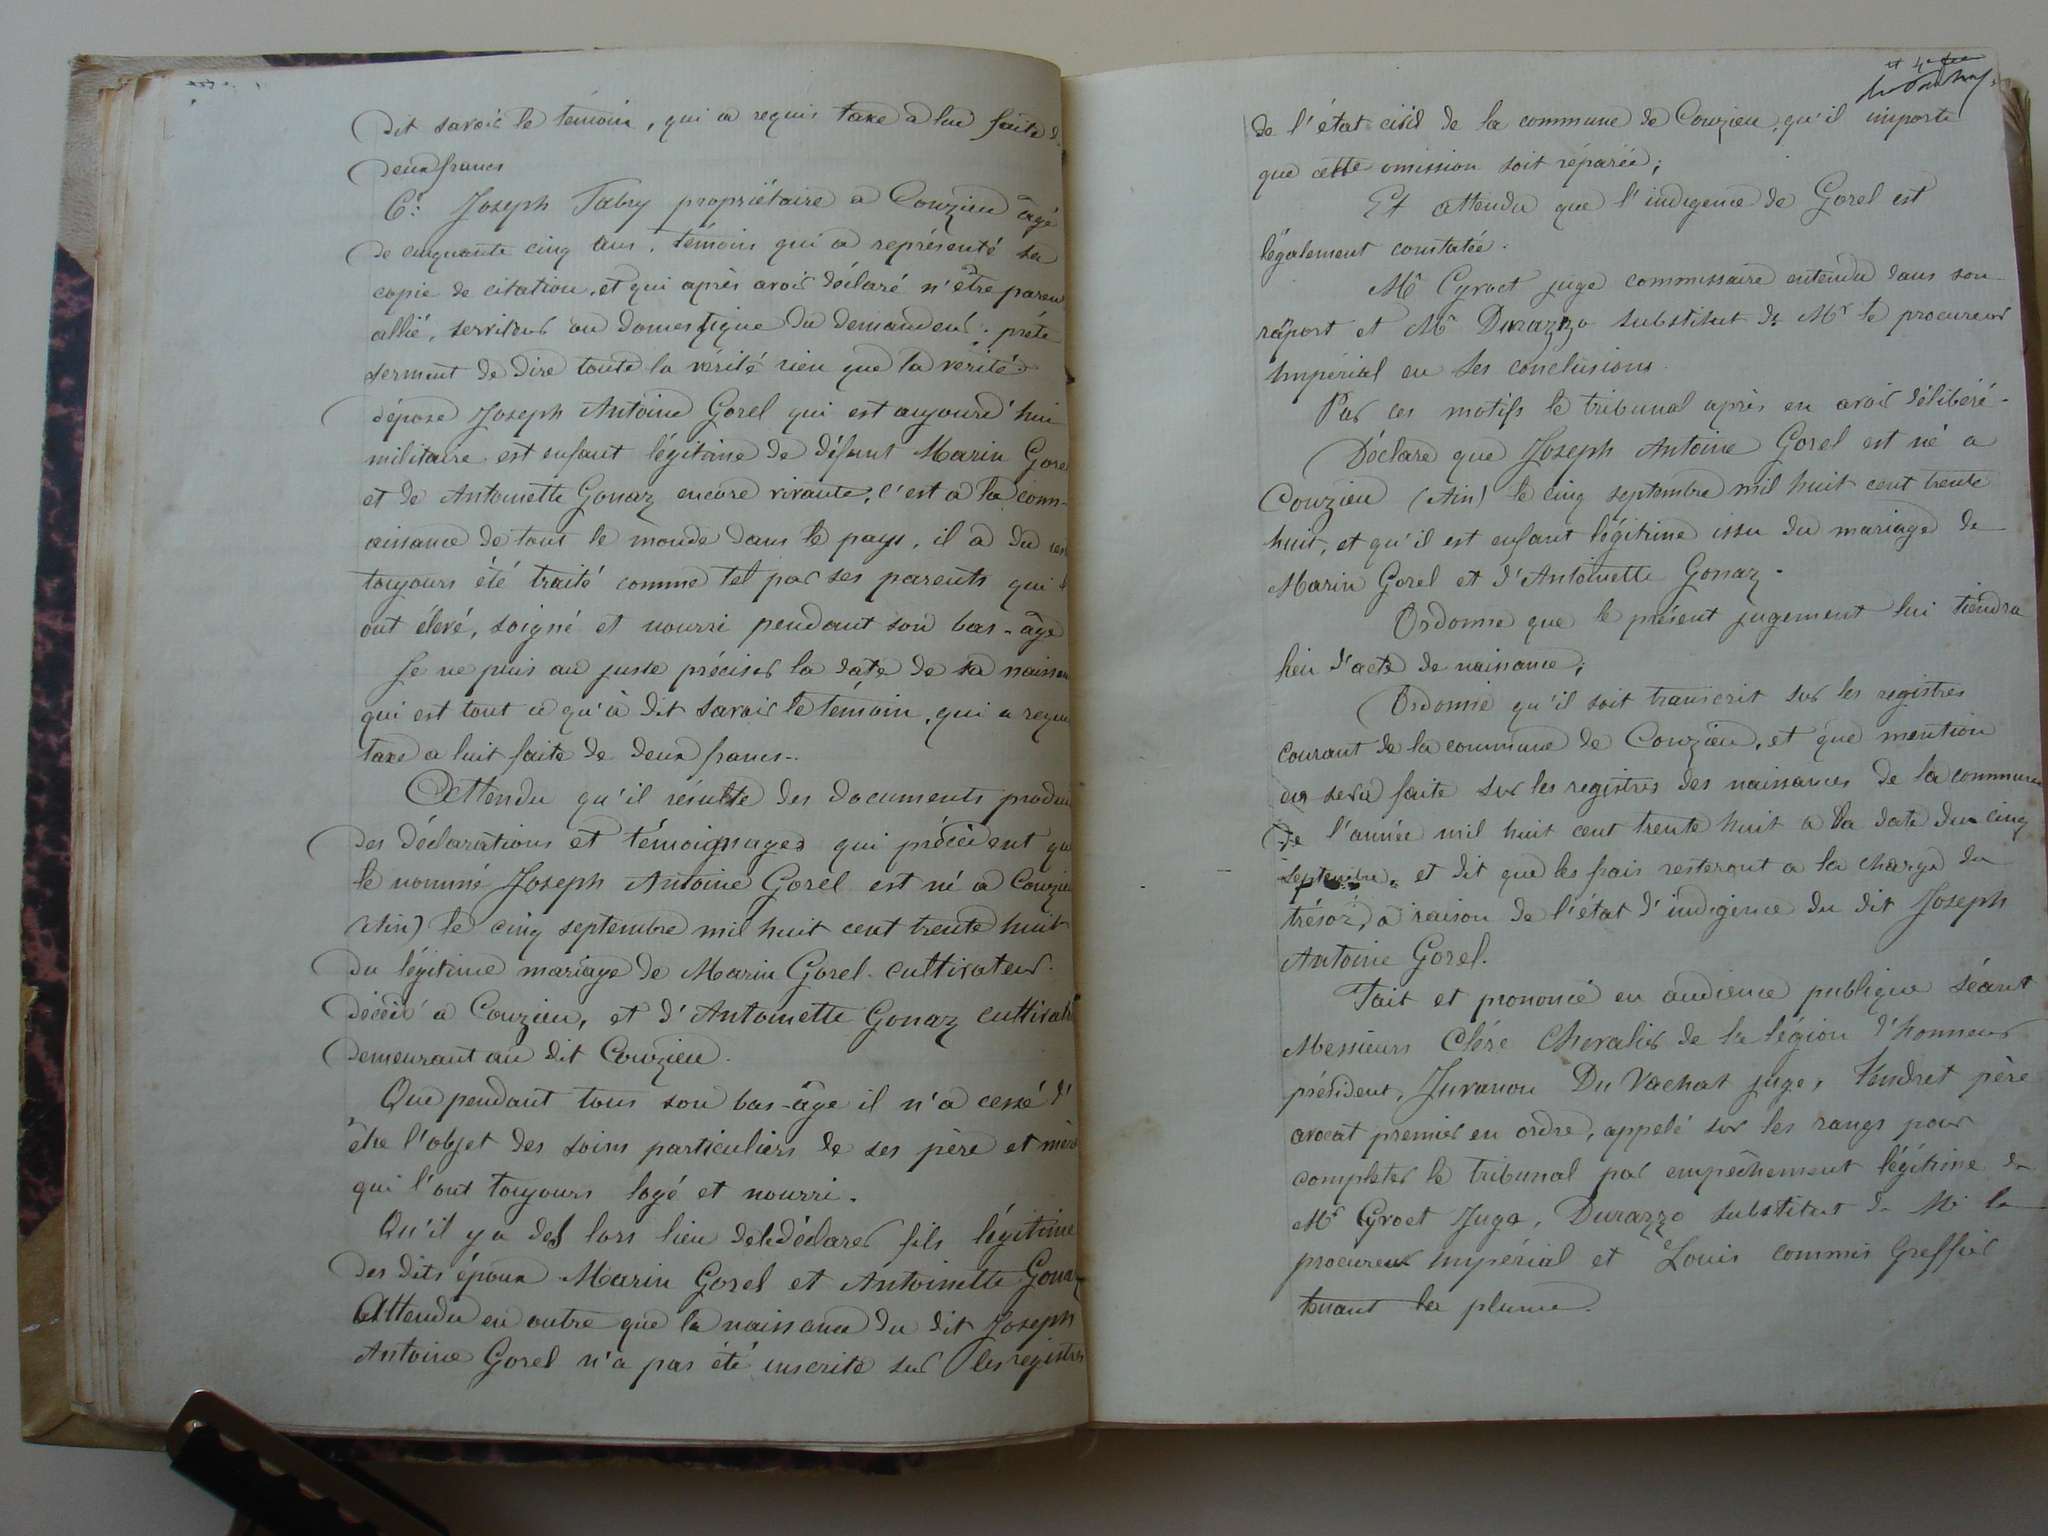 dit savoir le témoin, qui a requis taxe a lui faite de
deux francs
6°: Joseph Fabry propriétaire a Couzieu âgé
de cinquante cinq ans, témoin qui a représenté sa
copie de citation, et qui après avoir déclaré n'être paren
allié, serviteur ou domestique du demandeur, prête
serment de dire toute la vérité rien que la verité.
dépose Joseph Antoine Gorel qui est aujourd'hui
militaire est enfant légitime de défunt Marin Gore
et de Antoinette Gonaz encore vivante, c'est a la conn-
aissance de tout le monde dans le pays, il a du res
toujours été traité comme tel par ses parents qui l
ont élevé, soigné et nourri pendant son bas-âge
Je ne puis au juste préciser la date de sa naissan
qui est tout ce qu'à dit savoir le témoin, qui a requi
taxe a luit faite de deux francs..
Attendu qu'il résulte des documents produi
des déclarations et témoignages qui précédent qu
le nommé Joseph Antoine Gorel est né a Couzie
(Ain) le cinq septembre mil huit cent trente huit
du légitime mariage de Marin Gorel cultivateur
décédé a Couzieu, et d'Antoinette Gonaz cultivat
demeurant au dit Couzieu.
Que pendant tous son bas-âge il n'a cessé d'
être l'objet des soins particuliers de ses père et mère
qui l'ont toujours logé et nourri.
Qu'il y a des lors lieu de le déclarer fils légitime
des dits époux Marin Gorel et Antoinette Gonaz
Attendu en outre que la naissance du dit Joseph
Antoine Gorel n'a pas été inscrite sur les registres
et 4e
de l'état civil de la commune de Couzieu, qu'il importe
que cette omission soit réparée;
Et attendu que l'indigence de Gorel est
légalement constatée.
Mr Cyroct juge commissaire entendu dans son
raport et Mr Durazzo substitut de Mr le procureur
Impérial en ses conclusions
Par ces motifs le tribunal après en avoir délibéré.
Déclare que Joseph Antoine Gorel est né a
Couzieu (Ain) le cinq septembre mil huit cent trente
huit, et qu'il est enfant légitime issu du mariage de
Marin Gorel et d'Antoinette Gonaz.
Ordonne que le présent jugement lui tiendra
lieu d'acte de naissance;
Ordonne qu'il soit transcrit sur les registres
courant de la commune de Couzieu, et que mention
en sera faite sur les registres des naissances de la commune
de l'année mil huit cent trente huit a la date du cinq
septembre, et dit que les frais resteront a la charge du
trésor, a raison de l'état d'indigence du dit Joseph
Antoine Gorel.
Fait et prononcé en audience publique séant
Messieurs Cléré Chevalier de la légion d'honneur
président, Juvanon Du Vachat juge, Tendret père
avocat premier en ordre, appelé sur les rangs pour
completer le tribunal par empêchement légitime de
Mr Cyroct Juge, Durazzo substitut de Mr le
procureur Impérial et Louis commis Greffier
tenant la plume.